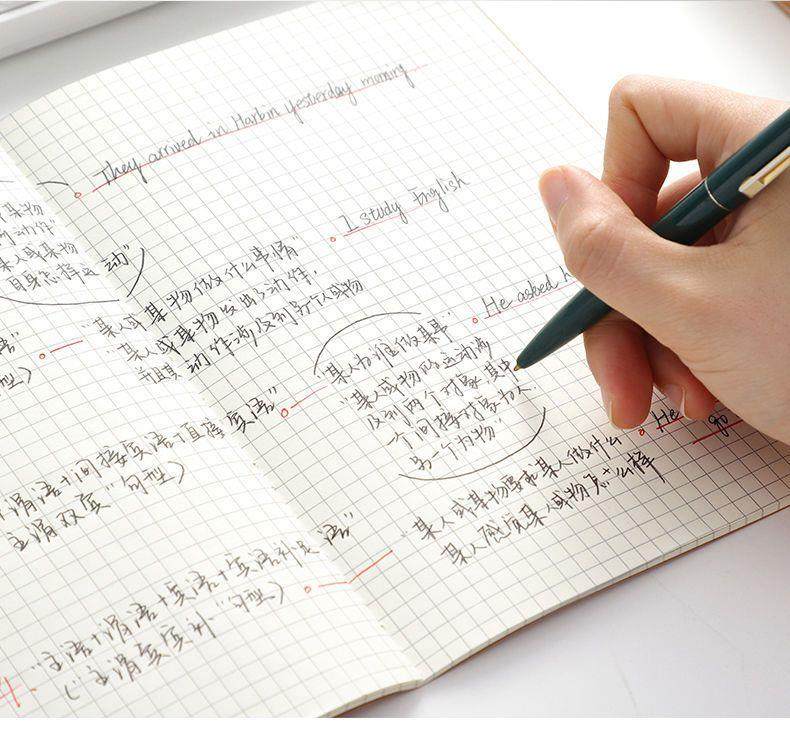 They arrived in Harbin yesterday morning
I study English
He asked h
He
go
某物
动作"
某人或某物
自身怎样运动"
"某人或某物做什么事情"
"某人或某物发出了动作,
并且其动作涉及到另个人或物
某人为谁做某事"
"某人或物的运动涉
及到两个对象,其中
一个间接对象为人,
另一个为物"
语"
型)
谓语+间接宾语+直接宾语"
主谓双宾"句型)
"某人或某物要求某人做什么
某人感觉某人或物怎么样
4. "主语+谓语+宾语+宾语补足语"
("主谓宾宾补"句型)